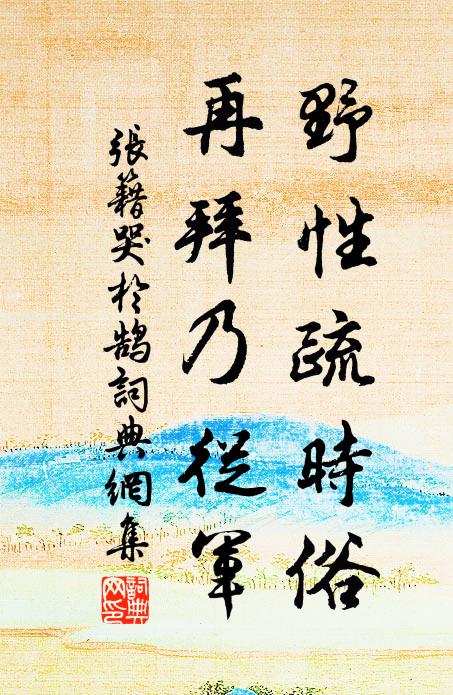 野性疏時俗
再拜乃從軍
張籍哭於鵠詞典網集
詞典